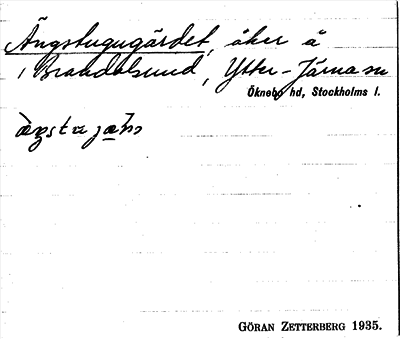 Ängstugugärdet, åker å
i Brandalsund, Ytter-Järna sn
Öknebo hd, Stockholms l.
GÖRAN ZETTERBERG 1935.